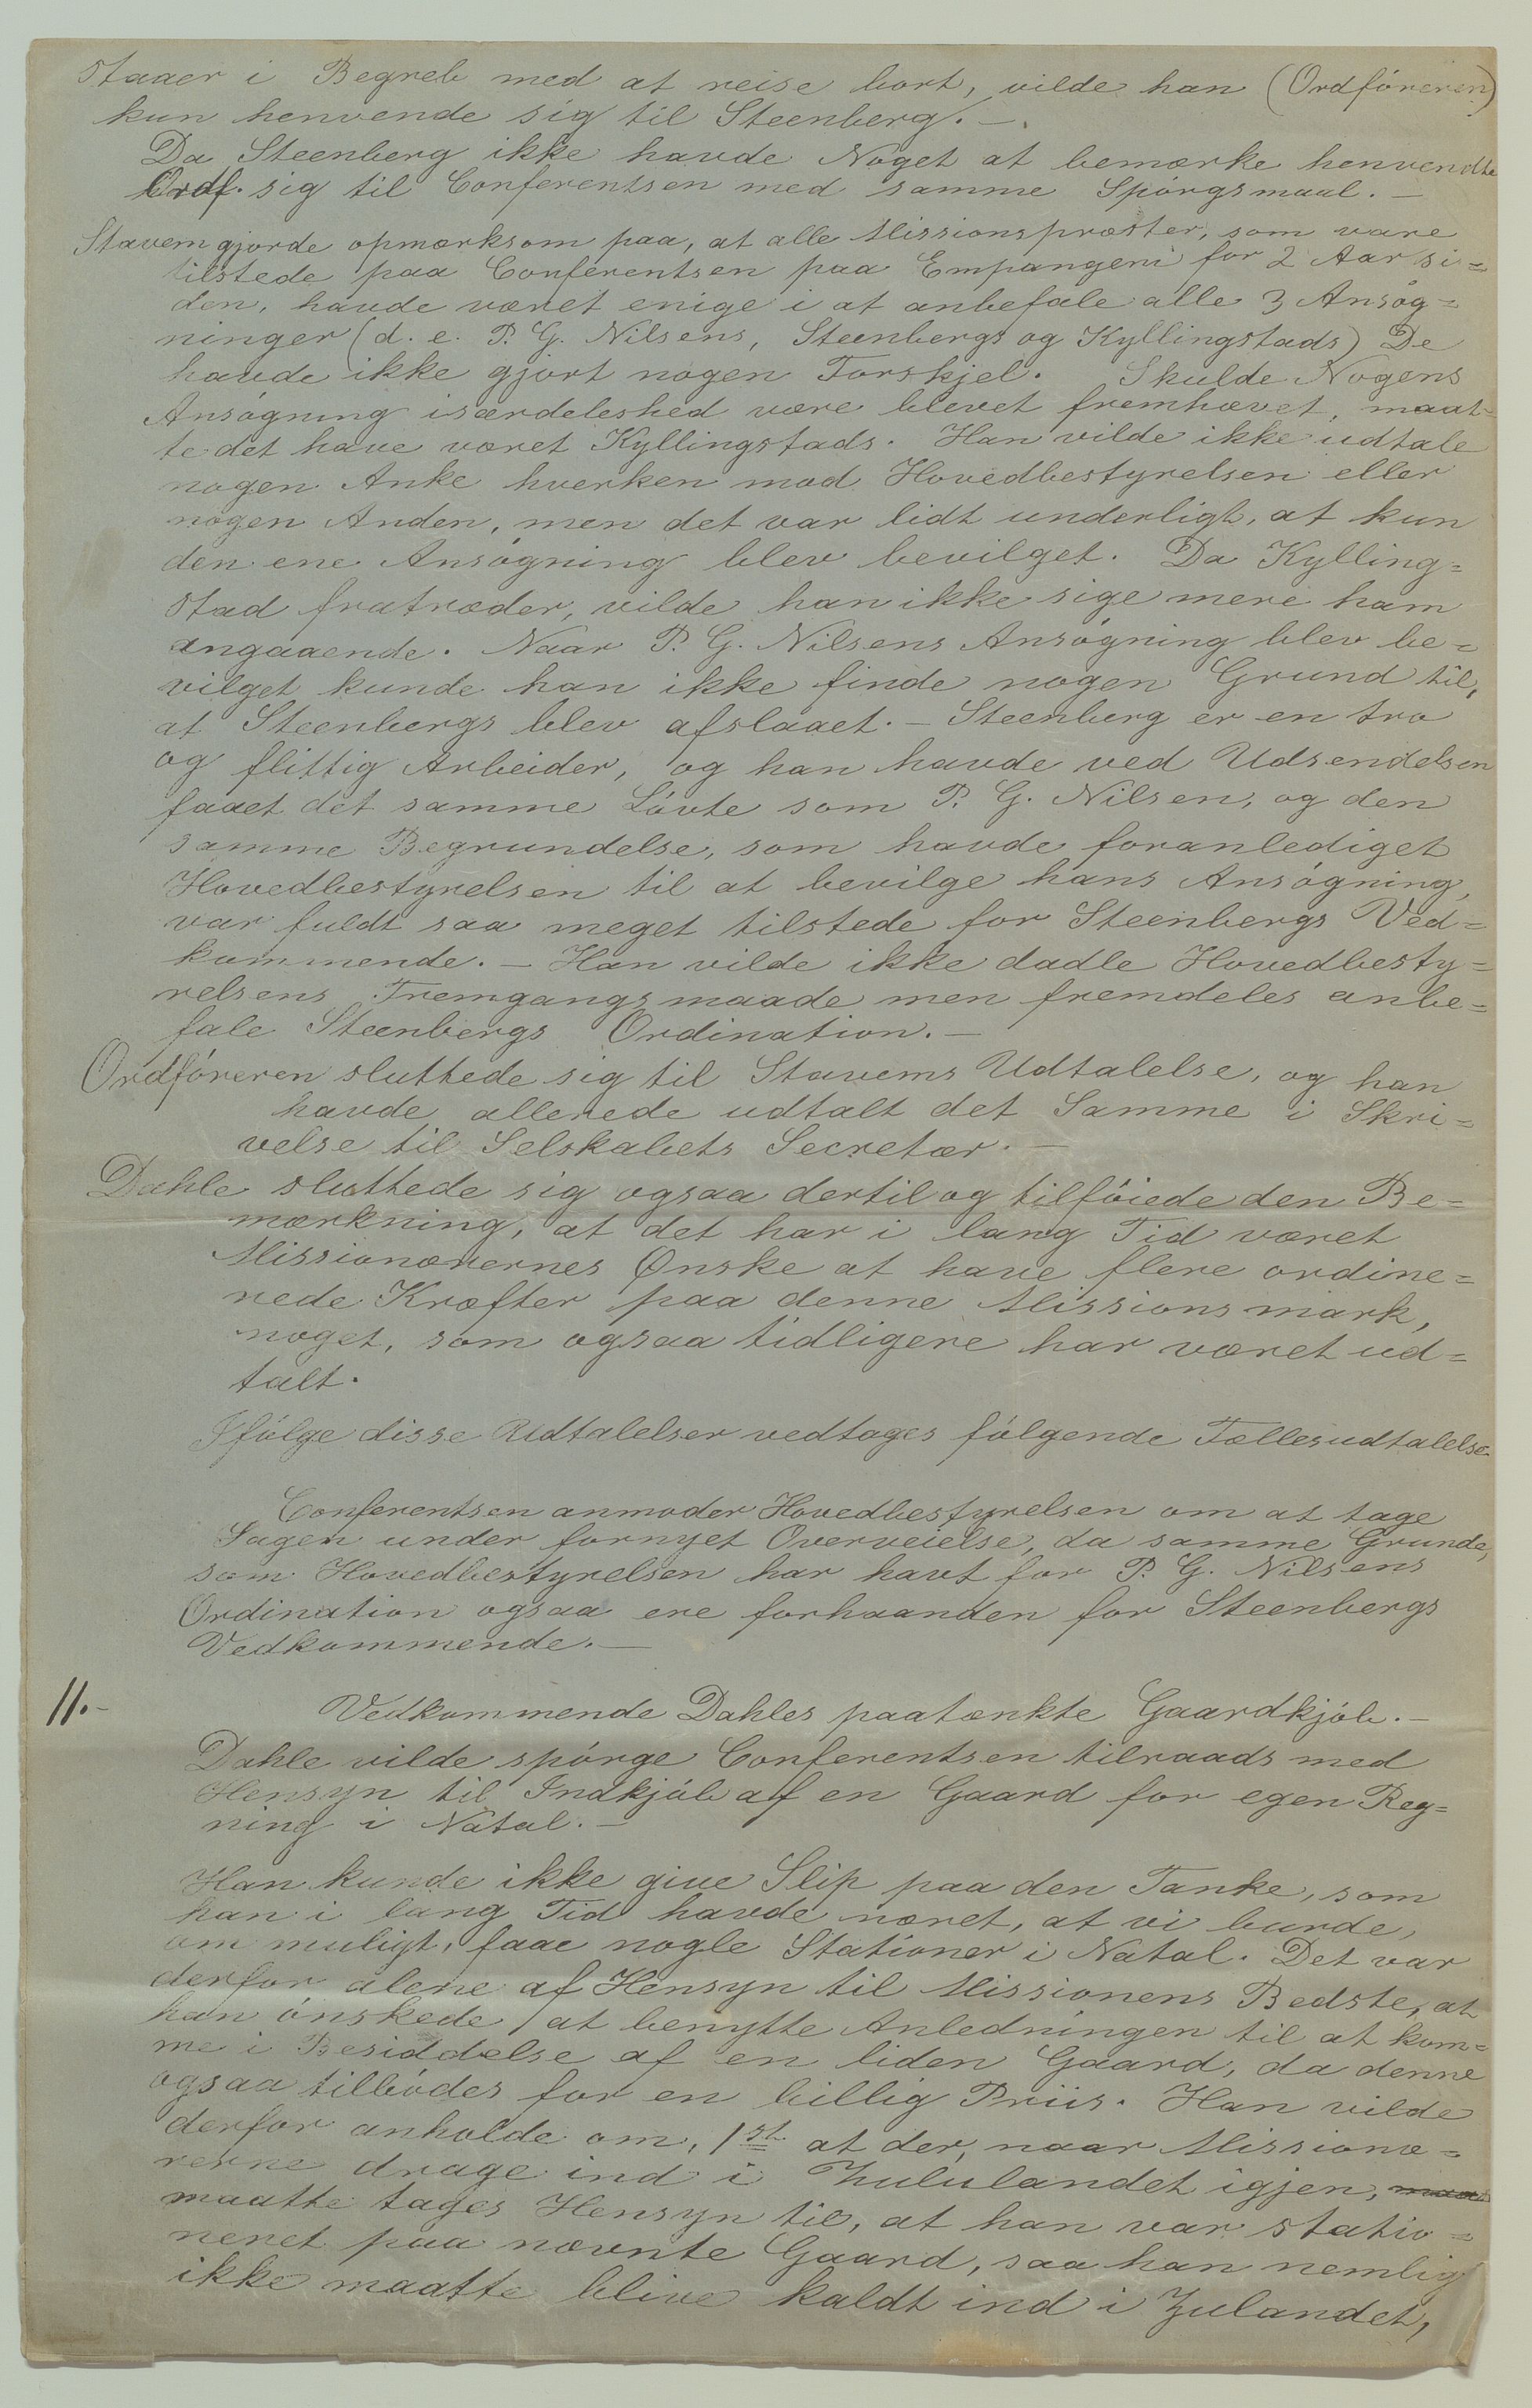 staaer i Begreb med at reise bort, vilde han (Ordføreren)
kun henvende sig til Steenberg. —
Da Steenberg ikke havde Noget at bemærke henvendte
Ordf. sig til Conferentsen med samme Spórgsmaal. —
Stavem gjorde opmærksom paa, at alle Missionspræster, som vare
tilstede paa Conferentsen paa Empangeni for 2 Aar si=
den, havde været enige i at anbefale alle 3 Ansóg=
ninger (d. e. P. G. Nilsens, Steenbergs og Kyllingstads) De
havde ikke gjort nogen Forskjel. Skulde Nogens
Ansógning isærdeleshed være blevet fremhævet, maat=
te det have været Kyllingstads. Han vilde ikke udtale
nogen Anke hverken mod Hovedbestyrelsen eller
nogen Anden, men det var lidt underligt, at kun
den ene Ansógning blev bevilget. Da Kylling=
stad fratræder, vilde han ikke sige mere ham
angaaende. Naar P. G. Nilsens Ansógning blev be=
vilget kunde han ikke finde nogen Grund til,
at Steenbergs blev afslaaet. — Steenberg er en tro
og flittig Arbeider, og han havde ved Udsendelsen
faaet det samme Lóvte som P. G. Nilsen, og den
samme Begrundelse, som havde foranlediget
Hovedbestyrelsen til at bevilge hans Ansógning,
var fuldt saa meget tilstede for Steenbergs Ved=
kommende. — Han vilde ikke dadle Hovedbesty=
relsens Fremgangsmaade men fremdeles anbe=
fale Steenbergs Ordination. —
Ordfóreren sluttede sig til Stavems Udtalelse, og han
havde allerede udtalt det Samme i Skri=
velse til Selskabets Secretær. —
Dahle sluttede sig ogsaa dertil og tilfóiede den Be=
mærkning, at det har i lang Tid været
Missionærernes Ønske at have flere ordine=
rede Kræfter paa denne Missionsmark,
noget, som ogsaa tidligere har været ud=
talt.
Ifólge disse Udtalelser vedtages fólgende Fællesudtalelse
Conferentsen anmoder Hovedbestyrelsen om at tage
Sagen under fornyet Overveielse, da samme Grunde,
som Hovedbestyrelsen har havt for P. G. Nilsens
Ordination ogsaa ere forhaanden for Steenbergs
Vedkommende. —
11.-
Vedkommende Dahles paatænkte Gaardkjób. —
Dahle vilde spórge Conferentsen tilraads med
Hensyn til Indkjób af en Gaard for egen Reg=
ning i Natal. —
Han kunde ikke give Slip paa den Tanke, som
han i lang Tid havde næret, at vi burde,
om muligt, faae nogle Stationer i Natal. Det var
derfor alene af Hensyn til Missionens Bedste, at
han ónskede at benytte Anledningen til at kom=
me i Besiddelse af en liden Gaard, da denne
ogsaa tilbódes for en billig Priis. Han vilde
derfor anholde om, 1st at der, naar Missionæ=
rerne drage ind i Zululandet igjen, maa
maatte tages Hensyn til, at han var statio=
neret paa nævnte Gaard, saa han nemlig
ikke maatte blive kaldt ind i Zulandet,